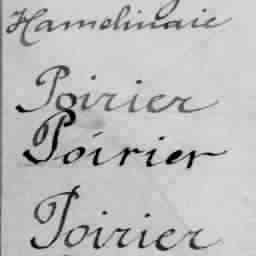 Hamelinaie
Poirier
Poirier
Poirier